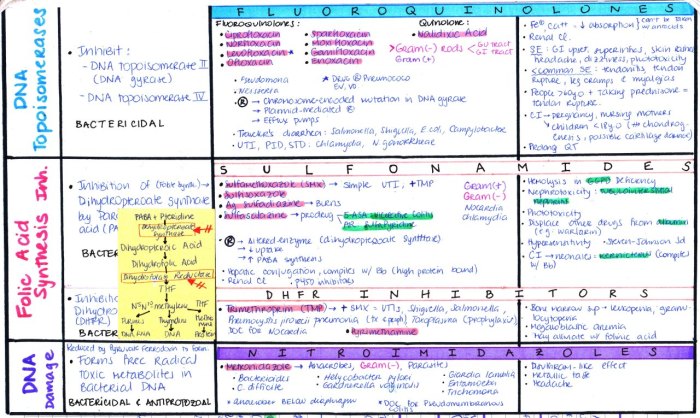 FLUOROQUINOLONES
DNA Topoisomerases
• Inhibit:
- DNA topoisomerase II
(DNA gyrase)
- DNA topoisomerase IV
BACTERICIDAL
Fluoroquinolones:
• Ciprofloxacin
• Norfloxacin
• Levofloxacin *
• Ofloxacin
• Sparfloxacin
• Moxifloxacin
• Gemifloxacin
• Enoxacin
Quinolone:
• Nalidixic Acid
> Gram(-) rods < GU tract
GI tract
Gram(+)
• Pseudomona
• Neisseria
* Drug @ pneumococo
EV, VO
• (R) → Chromosome-encoded mutation in DNA gyrase
→ Plasmid-mediated (R)
→ Efflux pumps
• Traveler's diarrhea: Salmonella, Shigella, E. coli, Campylobacter
• UTI, PID, STD, chlamydia, N. gonorrheae
• Fe Ca++ - ↓ absorption can't be taken w/antacids
• Renal Cl
• SE: GI upset, superinfxs, skin rash,
headache, dizziness, phototoxicity
• < common SE: tendonitis, tendon
rupture, leg cramps & myalgias
• People >60yo + taking prednisone =
tendon rupture.
• CI → pregnancy, nursing mothers
children <18yo
possible cartilage damage
• Prolong QT
Folic Acid Synthesis Inh.
SULFONAMIDES
• Inhibition of →
Dihydropteroate synthase
by
acid
PABA + Pteridine
Dihydropteroate
synthase
Dihydropteroic Acid
Dihydrofolic Acid
Dihydrofolate Reductase
THF
N5N10 methylene THF
THF
Purines
Thymidine
Methionine
Protein
DNA
• Sulfamethoxazole (SMX) → simple UTI, +TMP
• Sulfisoxazole
• Ag Sulfadiazine → Burns
• Sulfasalazine → prodrug
5-ASA
Sulfapyridine
Gram(+)
Gram(-)
Nocardia
Chlamydia
• (R) → Altered enzyme (dihydropteroate synthase)
→ ↓ uptake
→ ↑ PABA synthesis
• Hepatic conjugation, compites w/ Bb (high protein bound)
• Renal Cl
• P450 inhibitors
• Hemolysis in G6PD deficiency
• Nephrotoxicity: tubulointerstitial
nephritis
• Phototoxicity
• Displace other drugs from albumin
(e.g. warfarin)
• Hypersensitivity - Steven-Johnson Sd
• CI → neonates: kernicterus (compites
w/ Bb)
DHFR INHIBITORS
• Inhibition
Dihydro
(DHFR)
• Trimethoprim (TMP) → + SMX: UTIs, Shigella, Salmonella,
Pneumocystis jiroveci pneumonia (tx & ppx) Toxoplasma (prophylaxis)
DOC for Nocardia
• Pyrimethamine
• Bone marrow sup → leukopenia, granulo
cytopenia
• Megaloblastic anemia
• May alleviate w/ folinic acid
DNA Damage
NITROIMIDAZOLES
Reduced by Pyruvate Ferredoxin
• Forms Free Radical
Toxic metabolites in
Bacterial DNA
BACTERICIDAL & ANTIPROTOZOAL
• Metronidazole → Anaerobes, Gram(-), Parasites
• Bacteroides
• C. difficile
• Helicobacter pylori
• Gardnerella vaginalis
• Giardia lamblia
• Entamoeba
• Trichomona
• Anaerobe below diaphragm
* DOC for Pseudomembranous
Colitis
• Disulfiram-like effect
• Metallic taste
• Headache